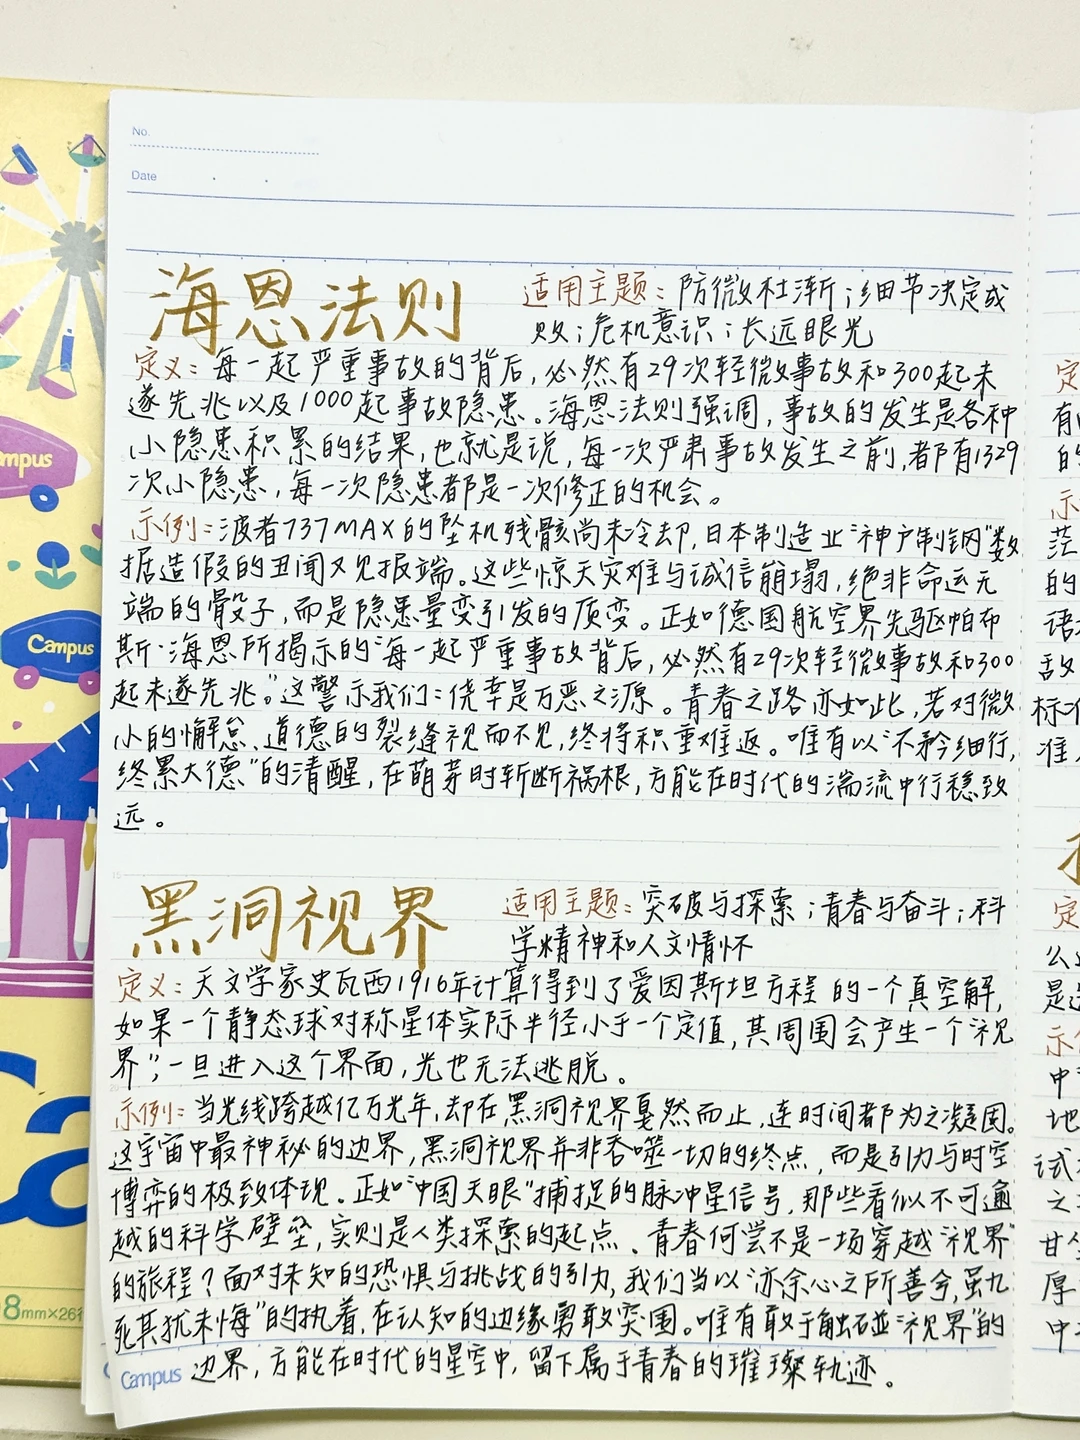 No.
Date
海恩法则
适用主题：防微杜渐；细节决定成
败；危机意识；长远眼光
定义：每一起严重事故的背后，必然有29次轻微事故和300起未
遂先兆以及1000起事故隐患。海恩法则强调，事故的发生是各种
小隐患积累的结果，也就是说，每一次严肃事故发生之前，都有1329
次小隐患，每一次隐患都是一次修正的机会。
示例：波者737MAX的坠机残骸尚未冷却，日本制造业"神户制钢"数
据造假的丑闻又见报端。这些惊天灾难与诚信崩塌，绝非命运无
端的骰子，而是隐患量变引发的质变。正如德国航空界先驱帕布
斯·海恩所揭示的"每一起严重事故背后，必然有29次轻微事故和300
起未遂先兆。"这警示我们：侥幸是万恶之源。青春之路亦如此，若对微
小的懈怠、道德的裂缝视而不见，终将积重难返。唯有以"不矜细行，
终累大德"的清醒，在萌芽时斩断祸根，方能在时代的湍流中行稳致
远。
黑洞视界
适用主题：突破与探索；青春与奋斗；科
学精神和人文情怀
定义：天文学家史瓦西1916年计算得到了爱因斯坦方程的一个真空解，
如果一个静态球对称星体实际半径小于一个定值，其周围会产生一个"视
界"，一旦进入这个界面，光也无法逃脱。
示例：当光线跨越亿万光年，却在黑洞视界戛然而止，连时间都为之凝固。
这宇宙中最神秘的边界，黑洞视界并非吞噬一切的终点，而是引力与时空
博弈的极致体现。正如"中国天眼"捕捉的脉冲星信号，那些看似不可逾
越的科学壁垒，实则是人类探索的起点。青春何尝不是一场穿越"视界"
的旅程？面对未知的恐惧与挑战的引力，我们当以"亦余心之所善兮，虽九
死其犹未悔"的执着，在认知的边缘勇敢突围。唯有敢于触碰"视界"的
边界，方能在时代的星空中，留下属于青春的璀璨轨迹。
Campus
mpus
Campus
Ca
8mm×26行
定
有
的
示
茫
的
语
敌
标准
准
定
么
是
示
中
地
试
之
甘
厚
中